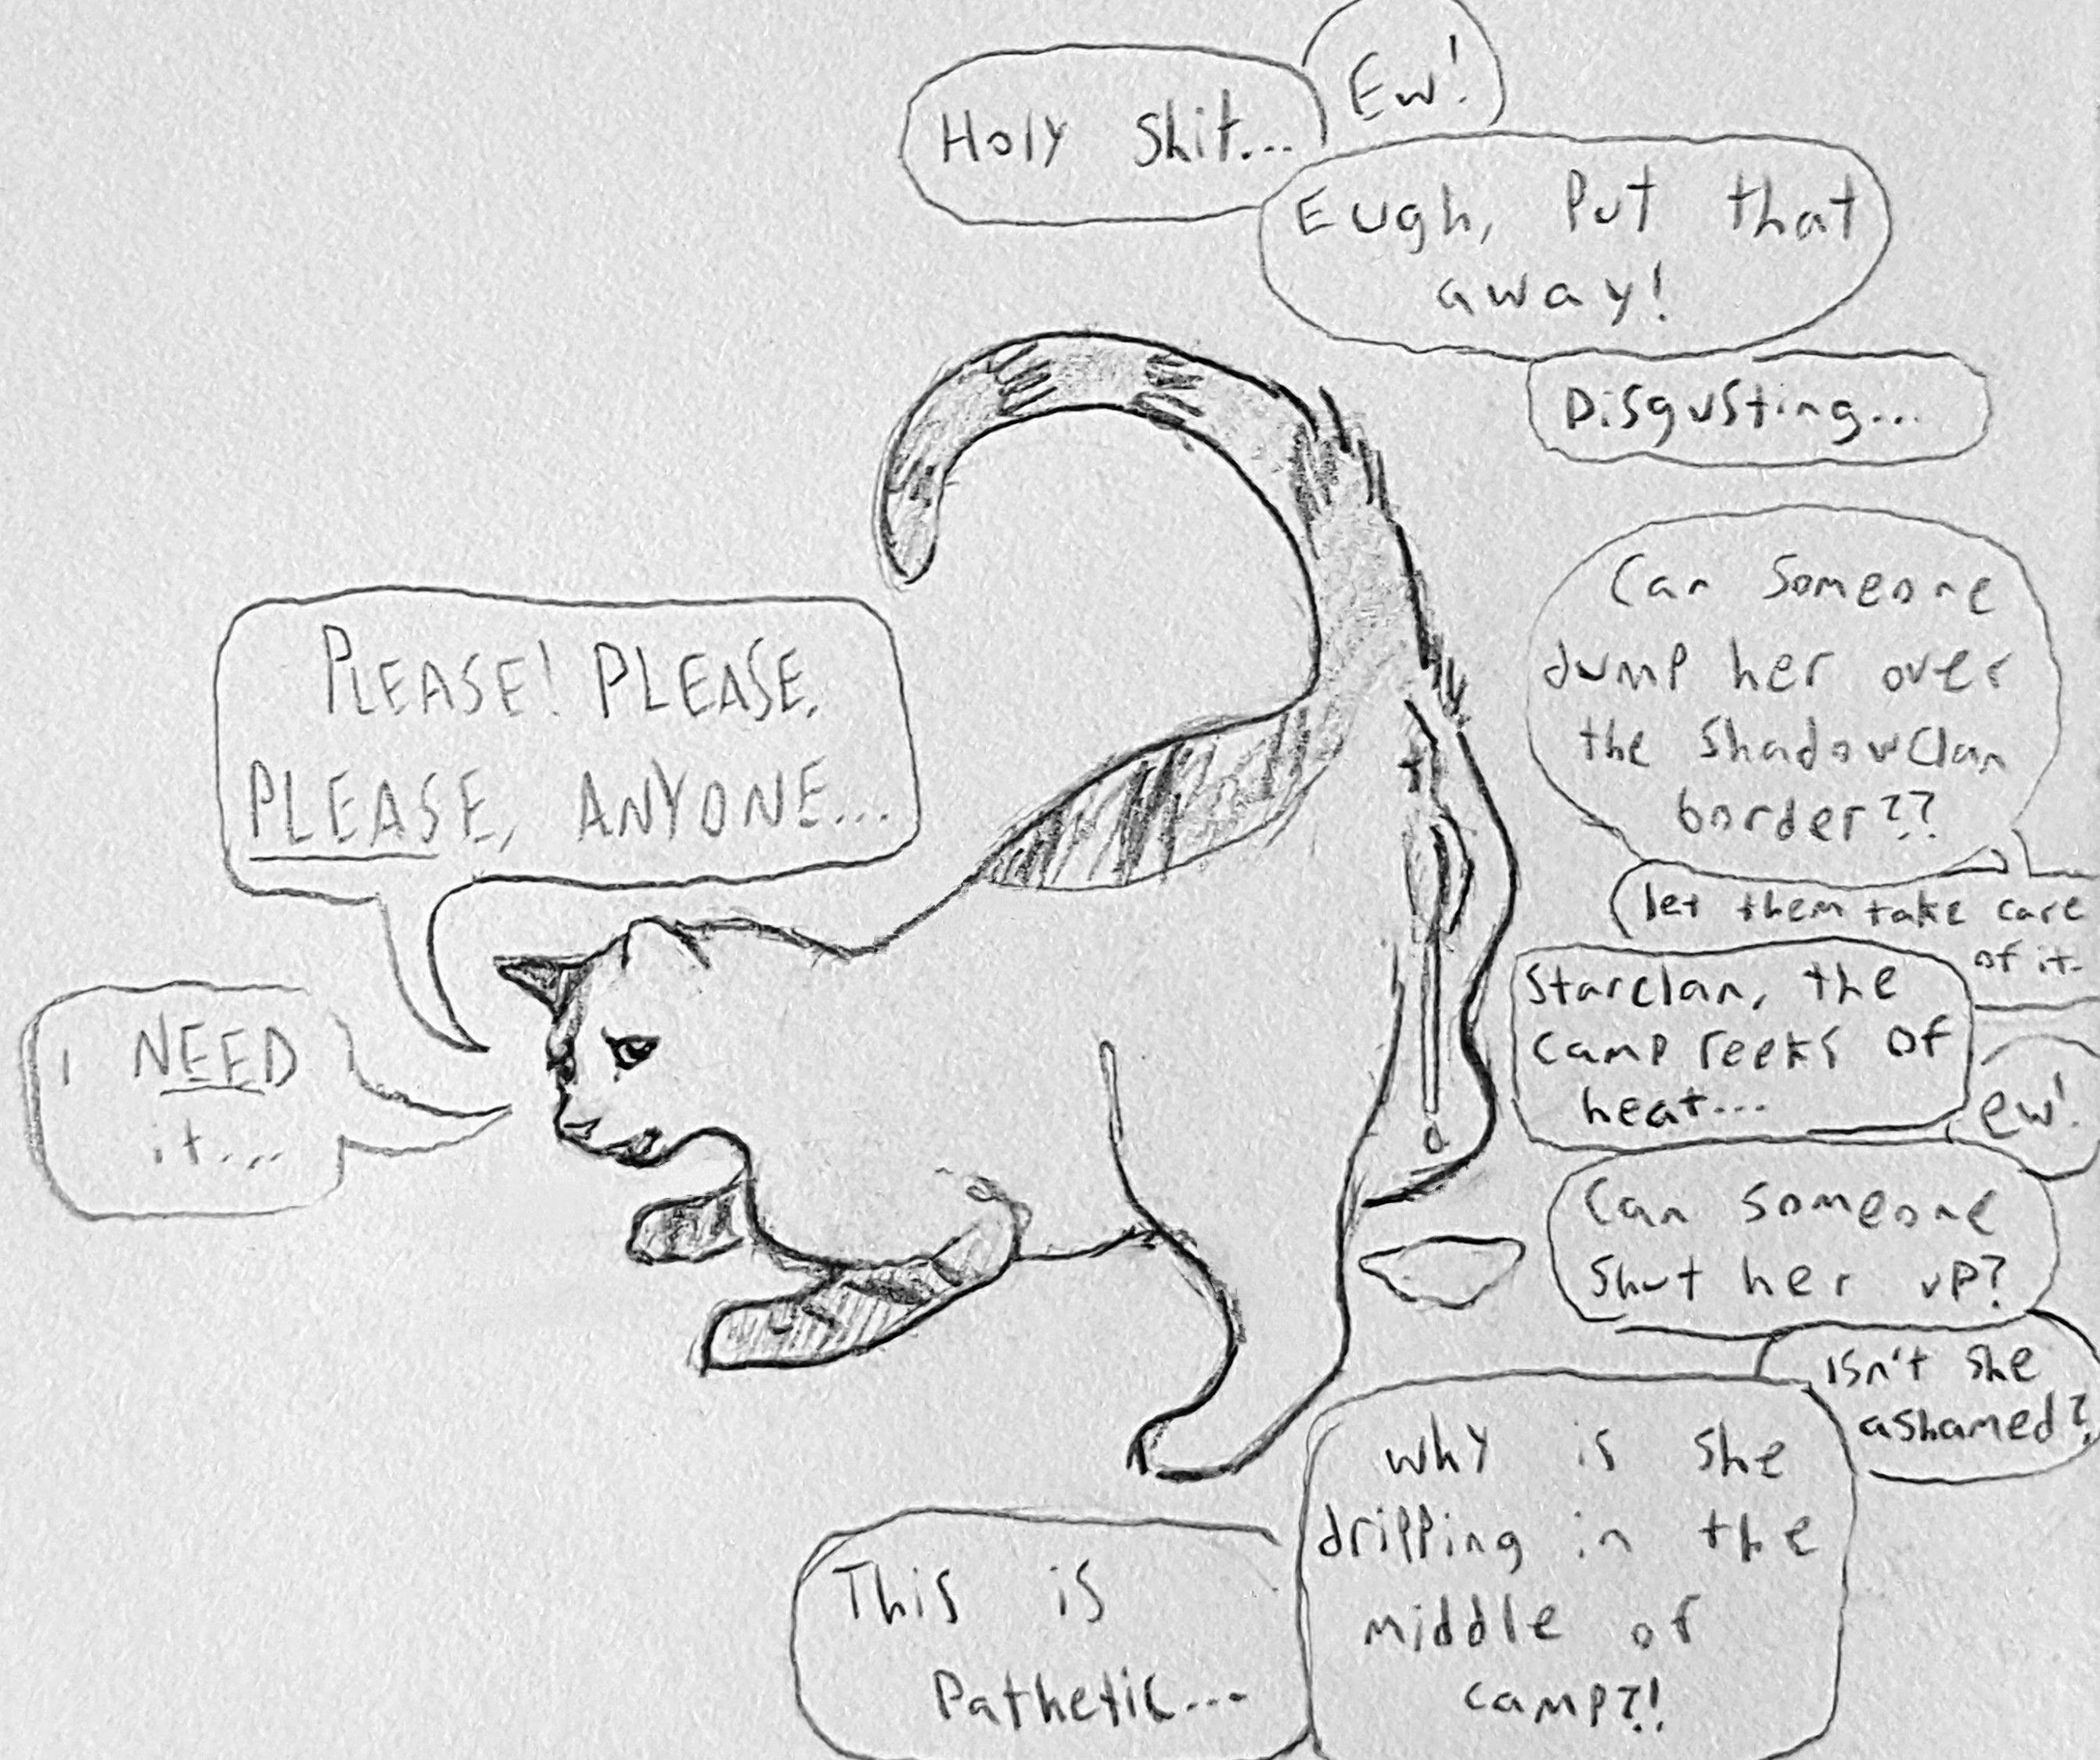 Holy shit...
Ew!
Eugh, Put that
away!
Disgusting...
PLEASE! PLEASE,
PLEASE, ANYONE...
I NEED
it...
Can someone
dump her over
the ShadowClan
border??
let them take care
of it.
Starclan, the
camp reeks of
heat...
ew!
Can someone
shut her up?
isn't she
ashamed?
why is she
dripping in the
middle of
camp?!
This is
Pathetic...